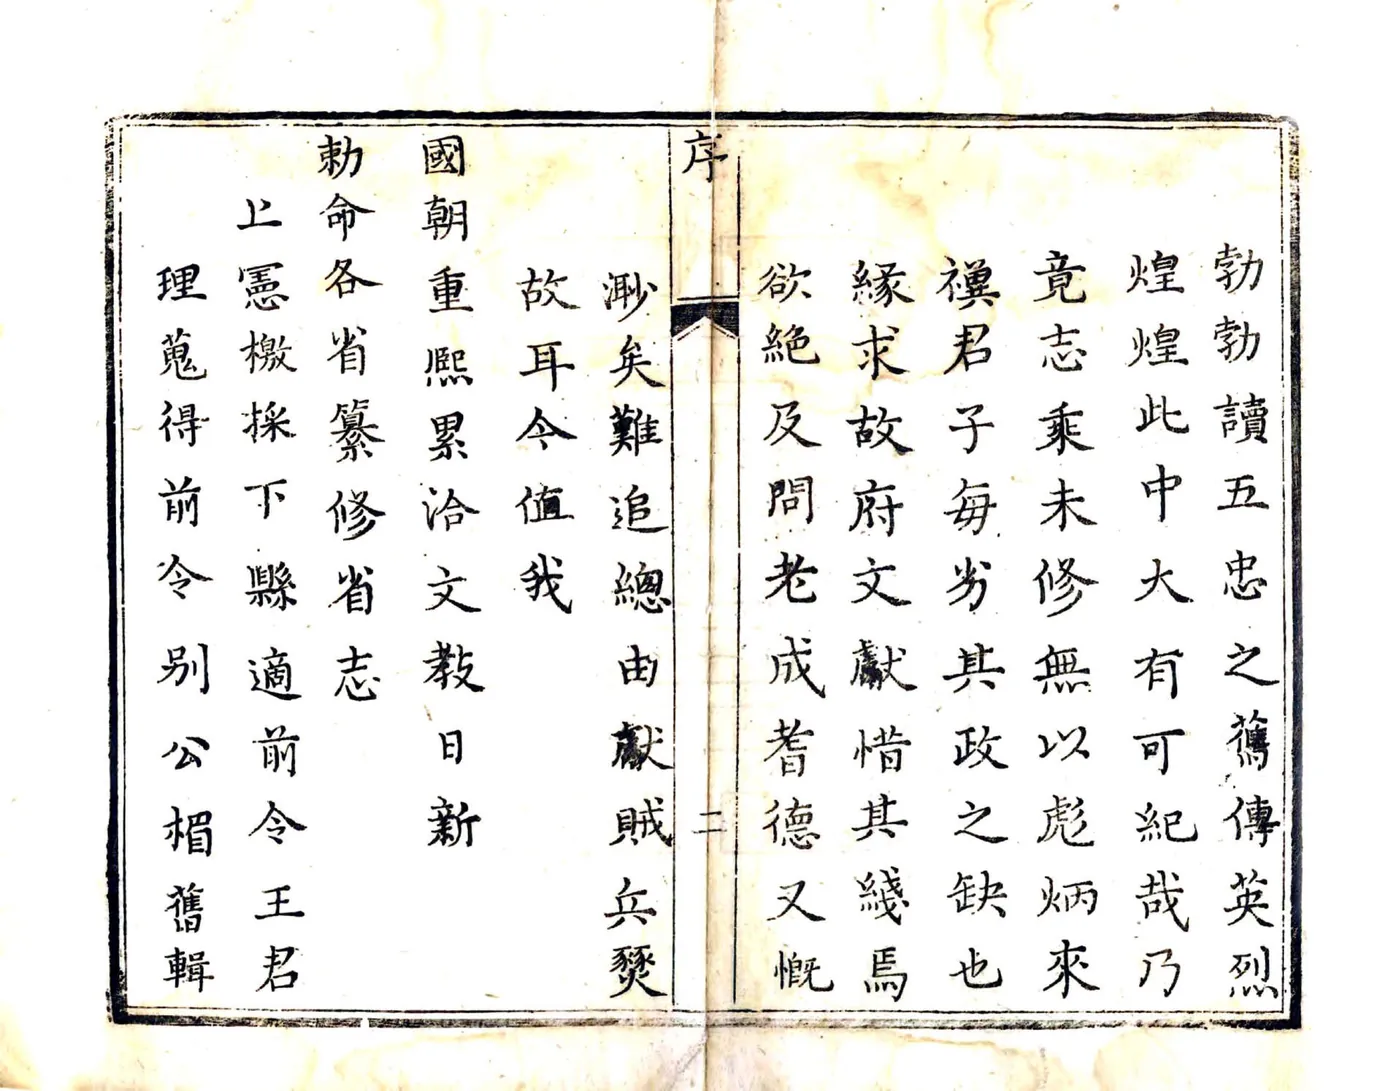 勃勃讀五忠之舊傳英烈
煌煌此中大有可紀哉乃
竟志乘未修無以彪炳來
禩君子每劣其政之缺也
緣求故府文獻惜其綫焉
欲絕及問老成耆德又慨
序
二
渺矣難追總由獻賊兵燹
故耳今值我
國朝重熙累洽文教日新
勅命各省纂修省志
上憲檄採下縣適前令王君
理蒐得前令別公楣舊輯